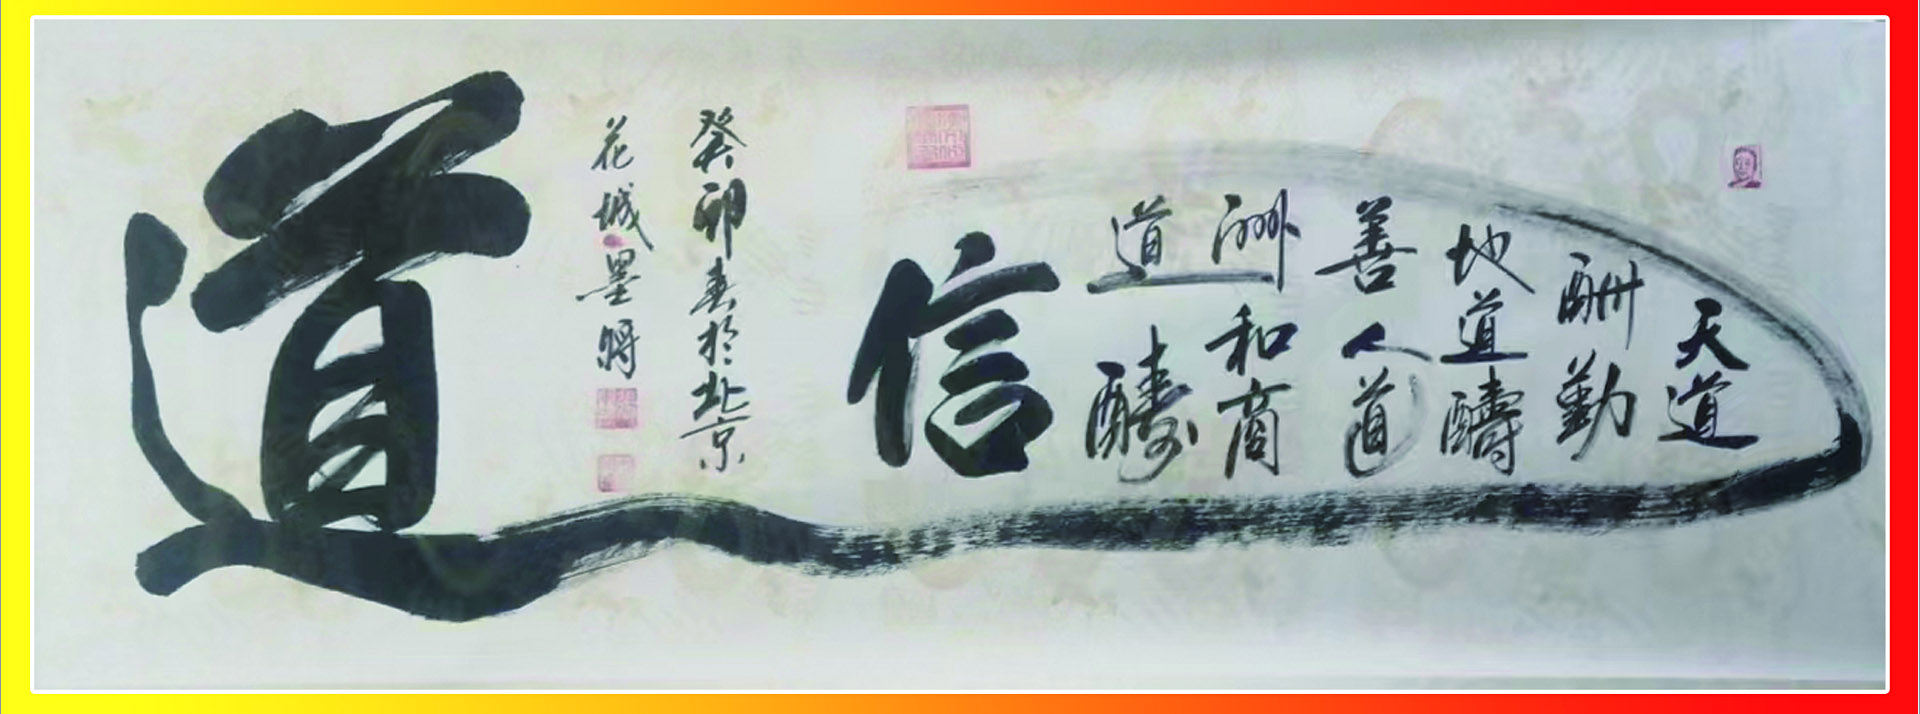 天道
酬勤
地道醻
善人道
酬和商
道醻
信
癸卯春於北京
花城墨将
道